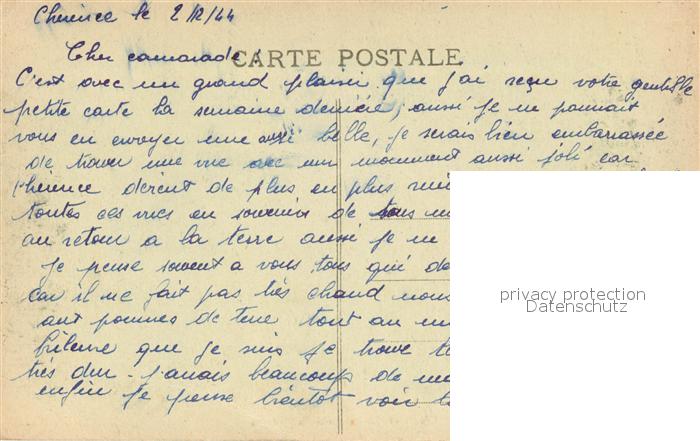 Cherience le 2/12/44
Cher camarade,
CARTE POSTALE
C'est avec un grand plaisir que j'ai reçu votre gentille
petite carte la semaine dernière, aussi je ne pouvait
vous en envoyer une aussi belle, je serais bien embarrassée
de trouver une vue avec un monument aussi joli car
Cherience devient de plus en plus
toutes ces vues en souvenir de
au retour a la terre aussi je ne
Je pense souvent a vous tous qui
car il ne fait pas très chaud nous
aux pommes de terre tout au
que je suis je trouve
très dur j'aurais beaucoup de
enfin je pense bientôt voir
privacy protection
Datenschutz